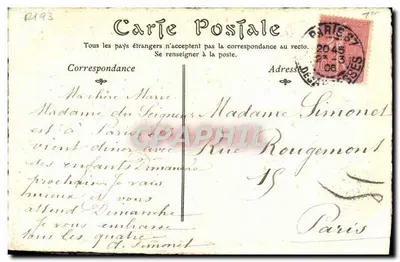 R193
Carte Postale
Tous les pays étrangers n'acceptent pas la correspondance au recto.
Se renseigner à la poste.
Correspondance
Adresse
PARIS 57
20 45
23-3
06
Ma chère Marie
Madame du Seigneur
est à Paris
vient dîner avec
des enfants Dimanche
prochain Je vais
mieux et vous
attend Dimanche
Je vous embrasse
tous les quatre
A. Simonet
Madame Simonet
Rue Rougemont
15
Paris
CPAPHIL